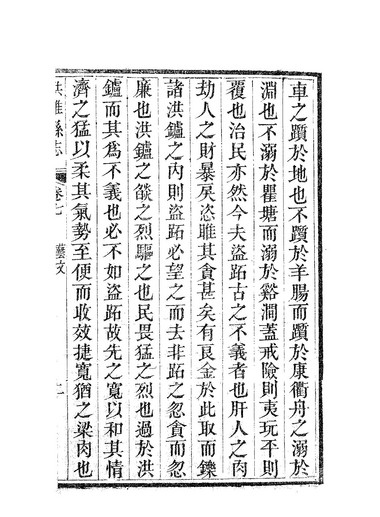 車之躓於地也不躓於羊腸而躓於康衢舟之溺於
淵也不溺於瞿塘而溺於谿澗蓋戒險則夷玩平則
覆也治民亦然今夫盜跖古之不義者也肝人之肉
劫人之財暴戾恣雎其貪甚矣有良金於此取而鑠
諸洪鑪之內則盜跖必望之而去非跖之忽貪而忽
廉也洪鑪之燄之烈驅之也民畏猛之烈也過於洪
鑪而其為不義也必不如盜跖故先之寬以和其情
濟之猛以柔其氣勢至便而收效捷寬猶之粱肉也
洪雅縣志 卷七 藝文